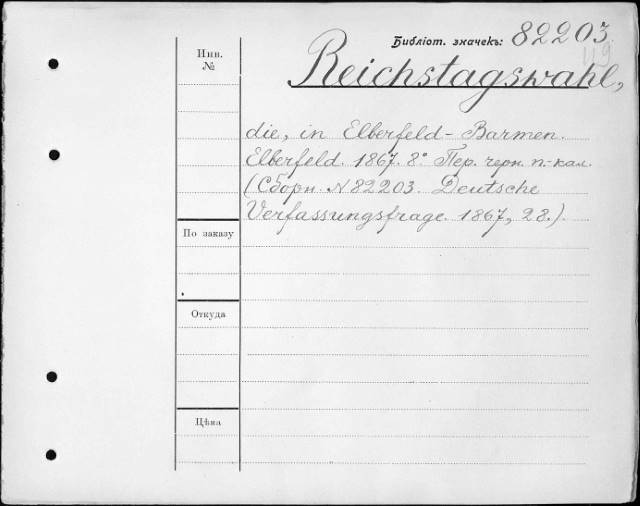 Библіот. значекъ: 82203.
Инв. №
Reichstagswahl,
die, in Elberfeld-Barmen.
Elberfeld. 1867. 8° Пер. черн. п.-кал.
(Сборн. N 82203. Deutsche
Verfassungsfrage 1867, 28.).
По заказу
Откуда
Цѣна